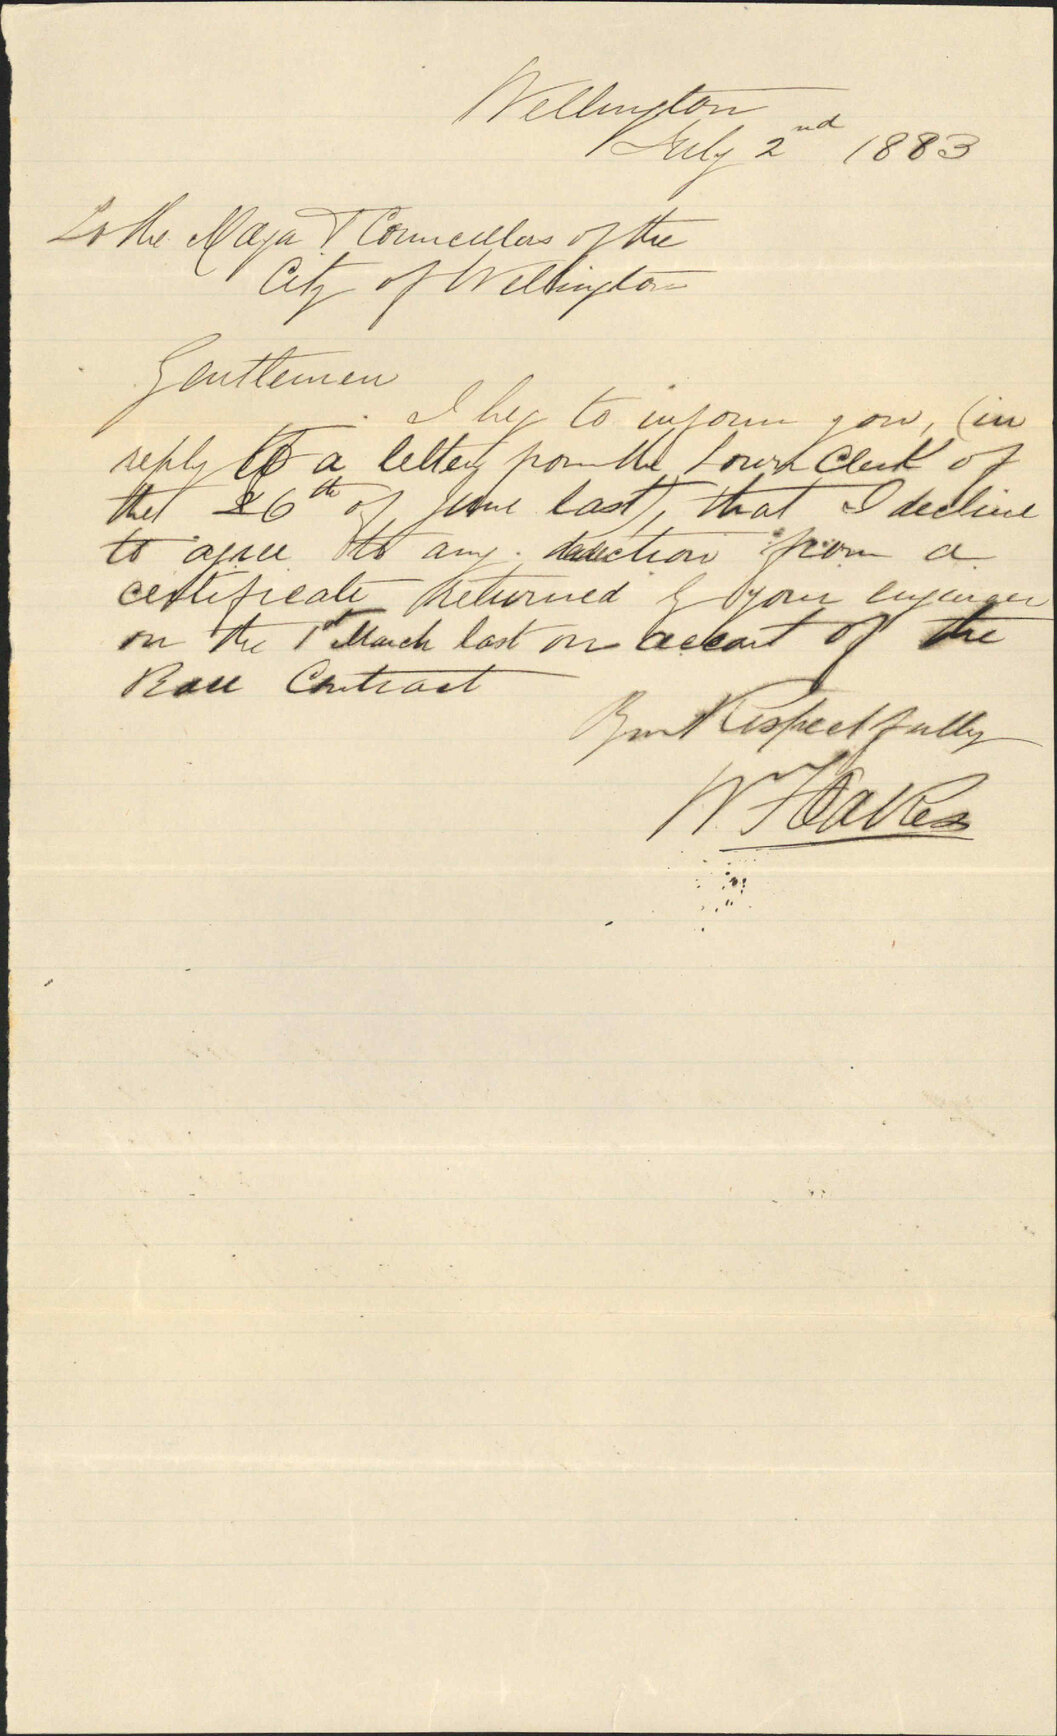 Wellington
July 2nd 1883
To the Mayor & Councellors of the
City of Wellington
Gentlemen
I beg to inform you, (in
reply to a letter from the Town Clerk of
the 26th of June last), that I decline
to agree to any deduction from a
certificate returned by your engineer
on the 1st March last on account of the
Contract
Your Respectfully
Oakes